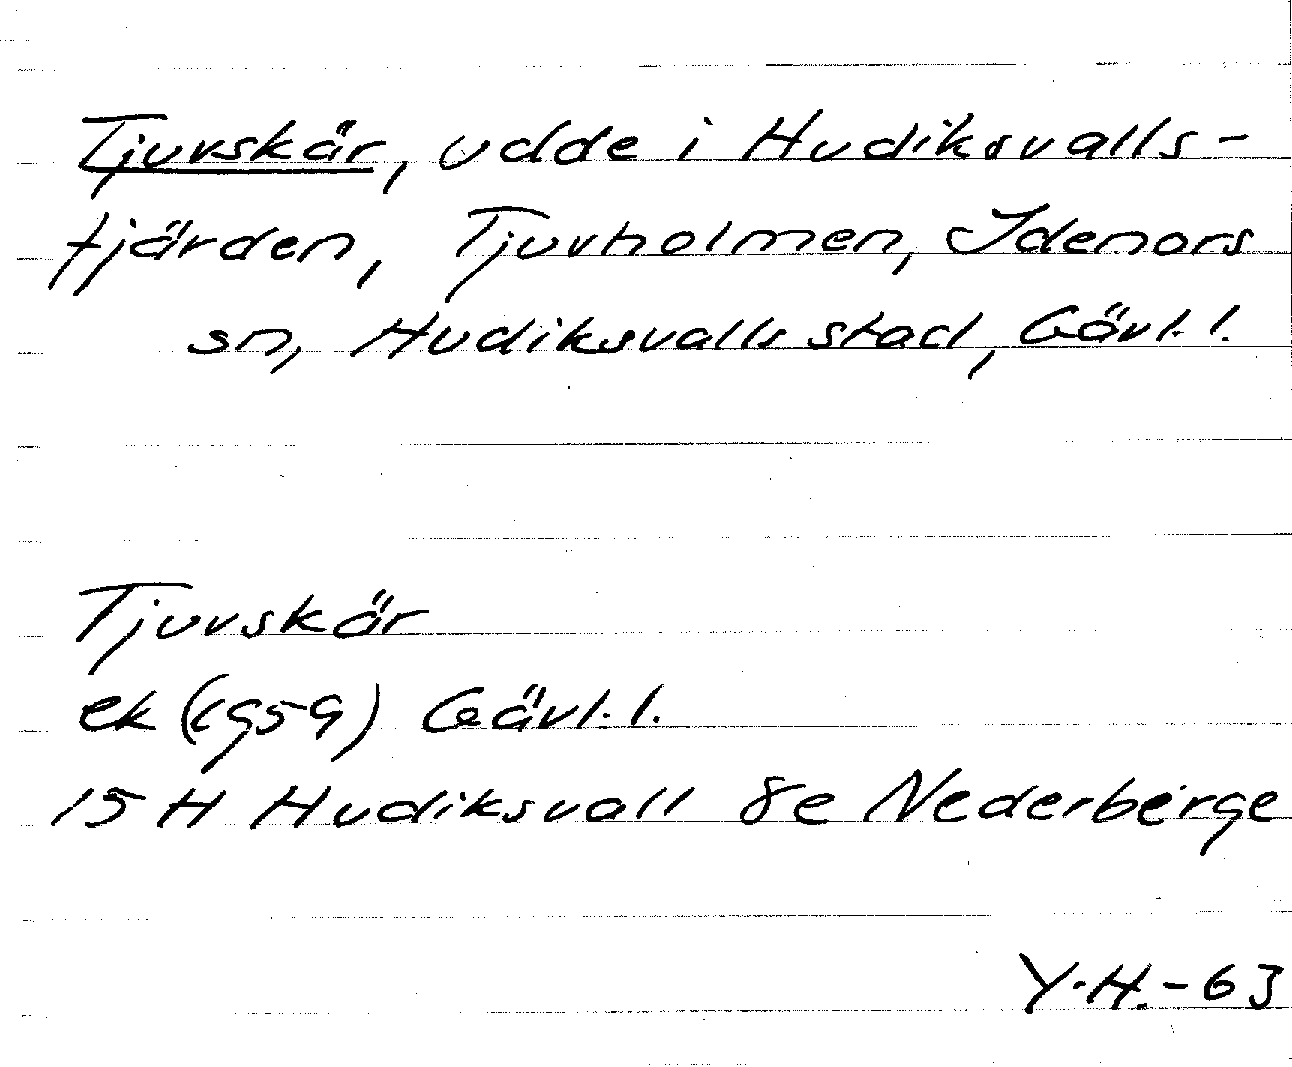 Tjuvskär, udde i Hudiksvalls-
fjärden, Tjuvholmen, Idenors
sn, Hudiksvalls stad, Gävl. l.
Tjuvskär
ek (1959) Gävl. l.
15 H Hudiksvall 8e Nederberge
Y.H. -63